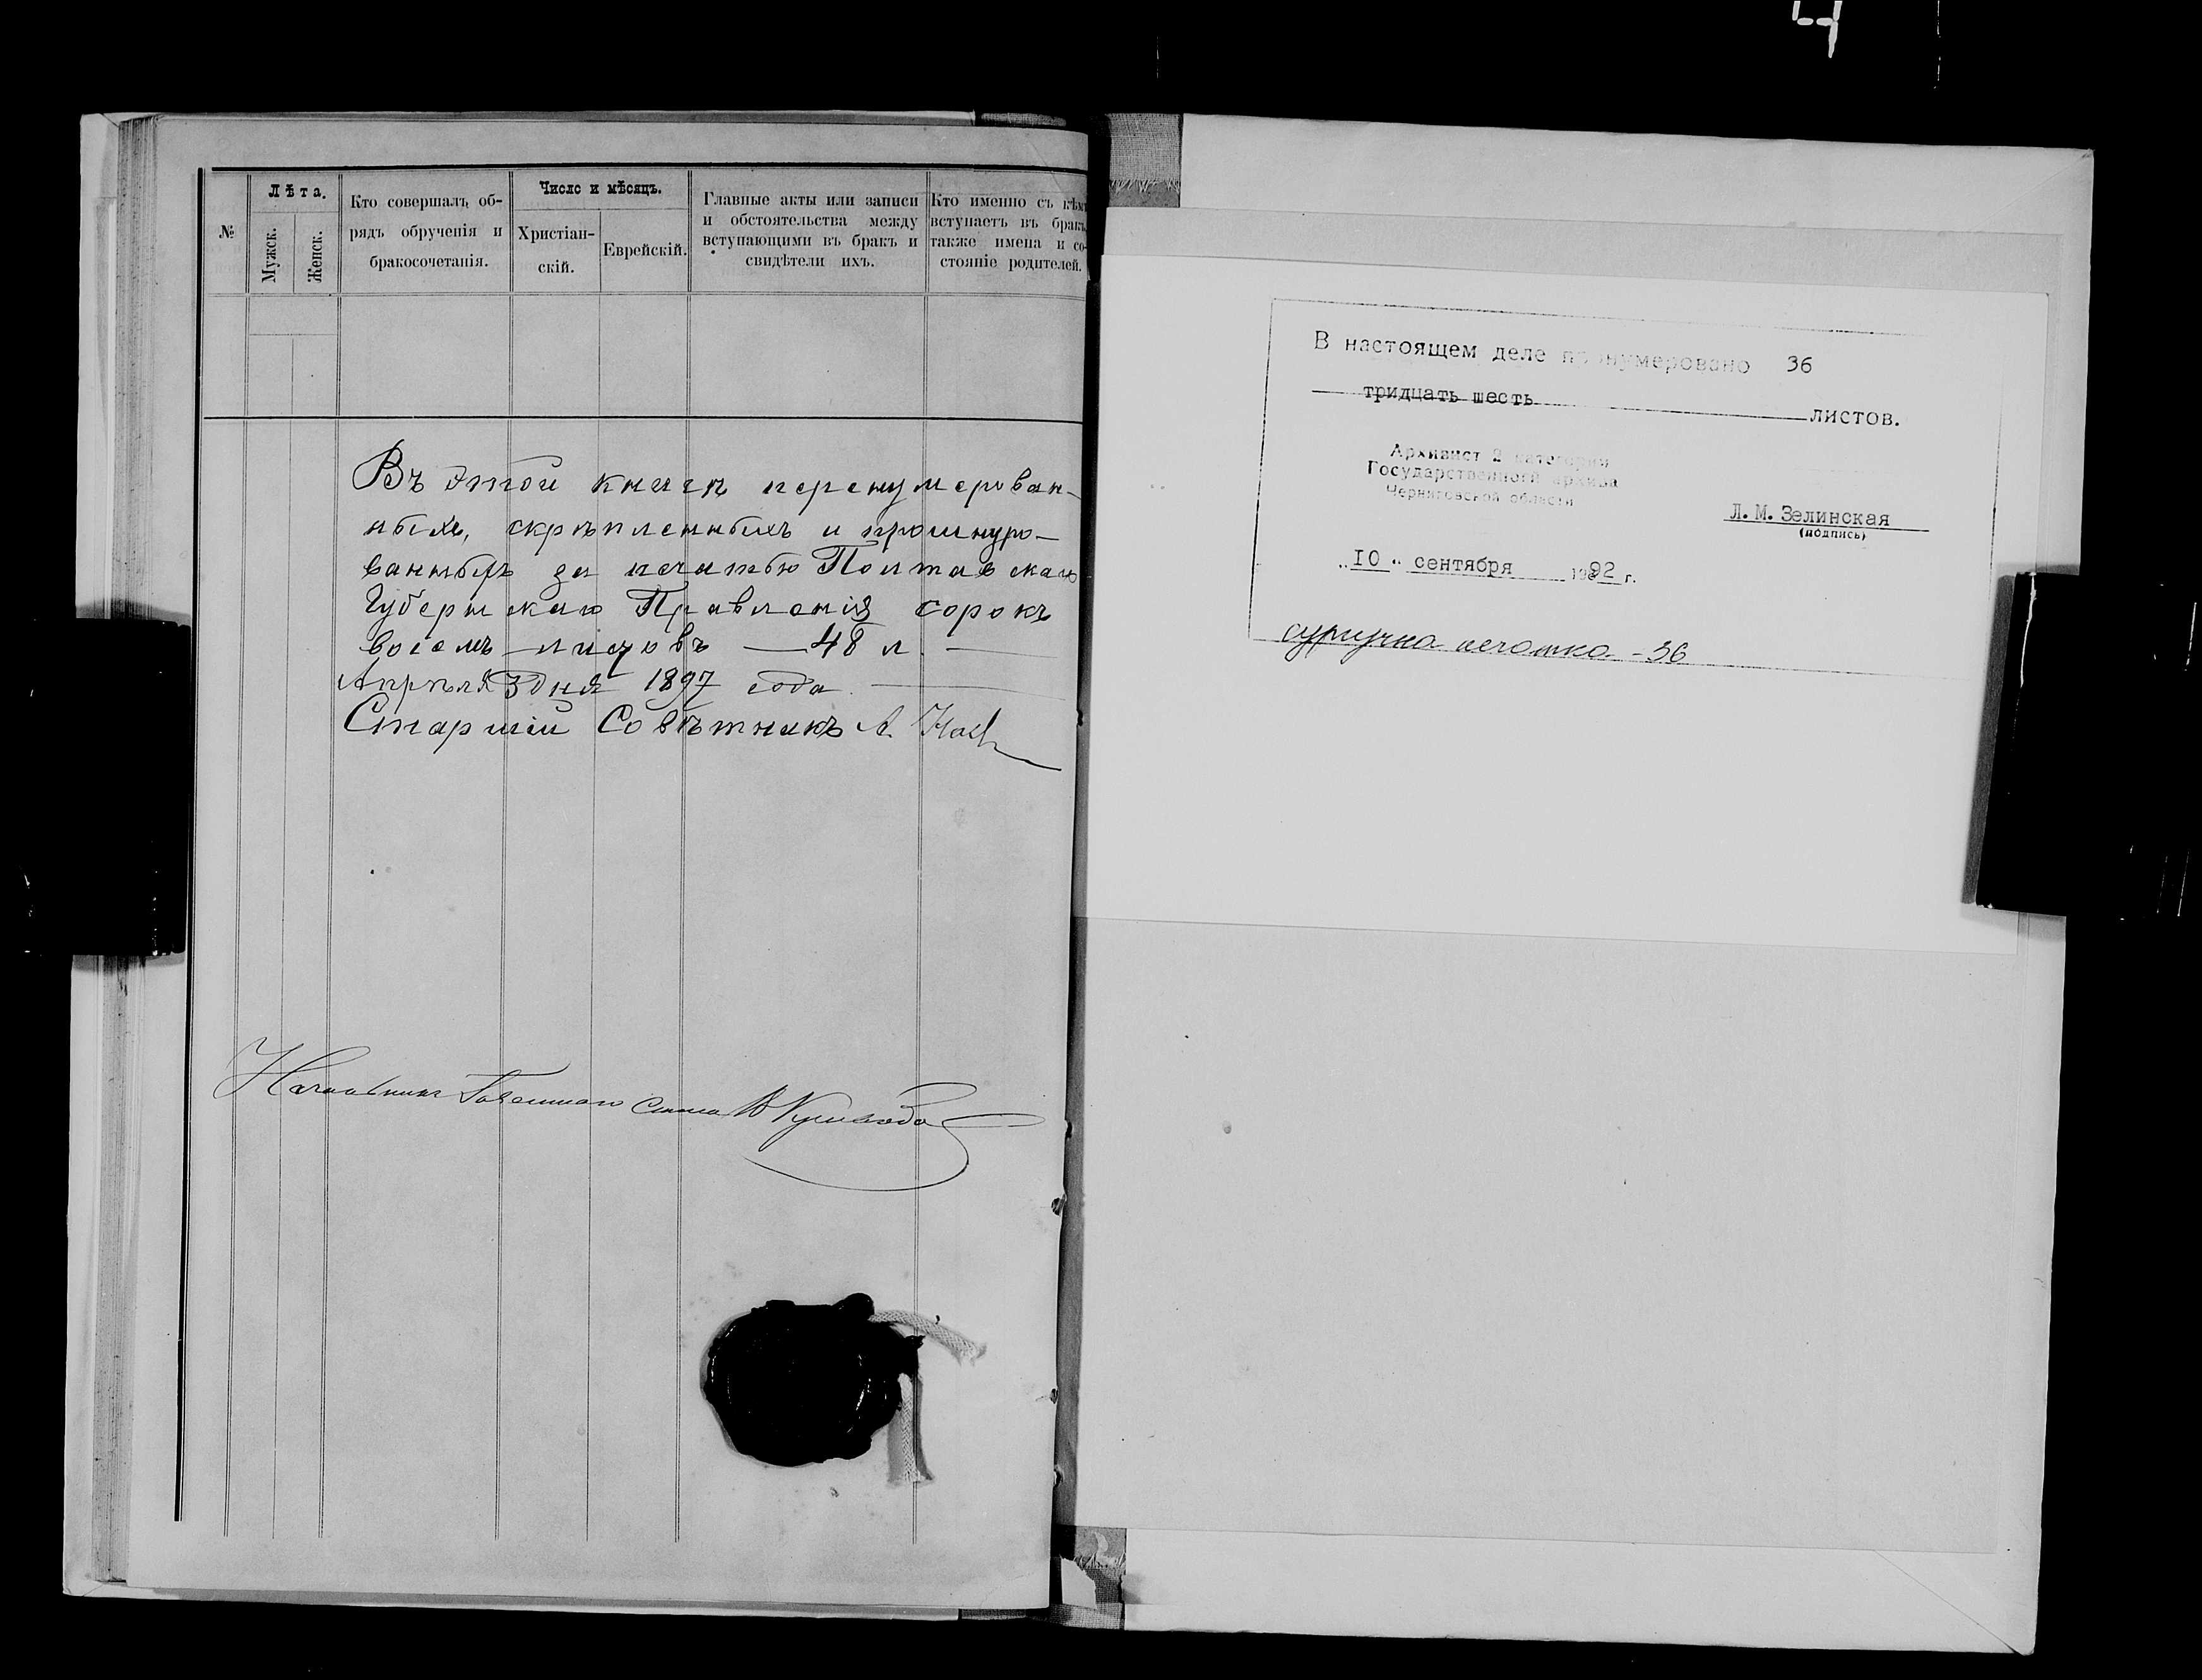 №
Лѣта.
Мужск.
Женск.
Кто совершалъ об-
рядъ обрученія и
бракосочетанія.
Число и мѣсяцъ.
Христіан-
скій.
Еврейскій.
Главные акты или записи
и обстоятельства между
вступающими въ бракъ и
свидѣтели ихъ.
Кто именно съ кѣмъ
вступаетъ въ бракъ,
также имена и со-
стояніе родителей.
Въ этой книгѣ перенумерован-
ныхъ, скрѣпленныхъ и прошнуро-
ванныхъ за печатью Полтавскаго
Губернскаго Правленія сорокъ
восемь — листовъ — 48 л. —
Апрѣля 3 дня 1897 года. —
Старшій Совѣтникъ А.
В настоящем деле пронумеровано 36
тридцать шесть листов.
Архивист 2 категории
Государственного архива
Черниговской области
Л.М.Зелинская
(подпись)
"10" сентября 1992 г.
сургучна печатка - 36